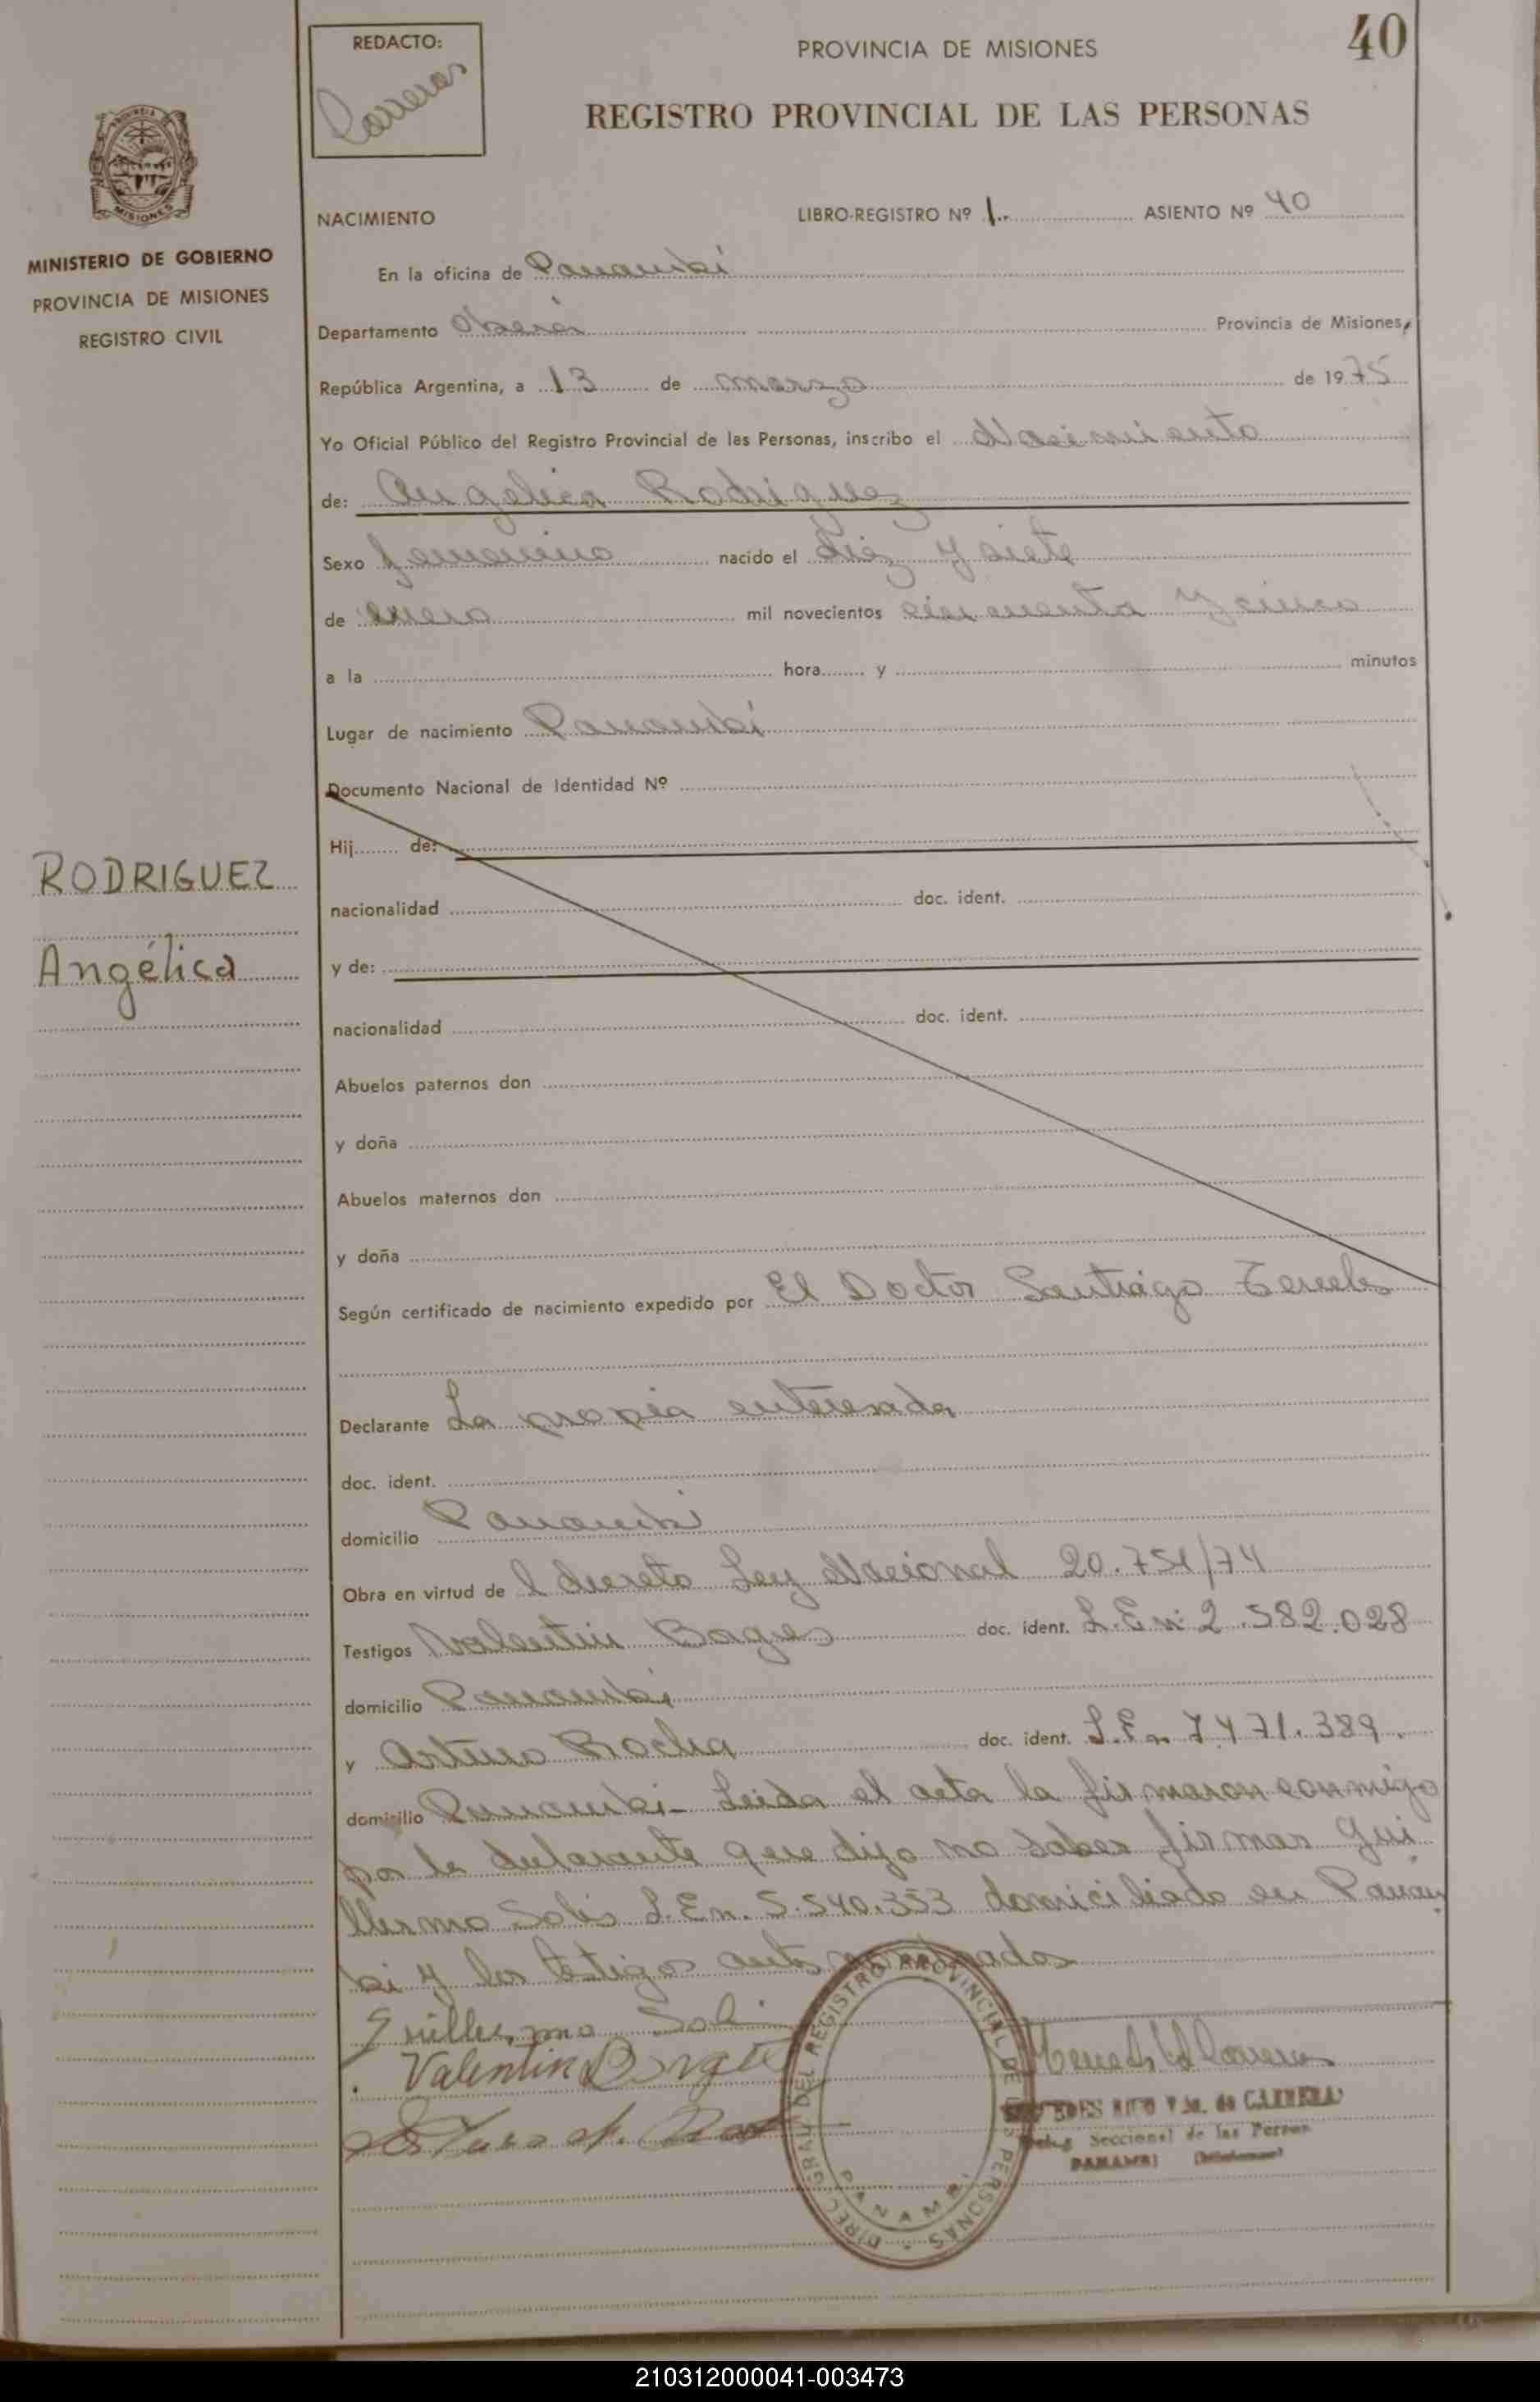 40
REDACTO:
Carreras
PROVINCIA DE MISIONES
REGISTRO PROVINCIAL DE LAS PERSONAS
MISIONES
MINISTERIO DE GOBIERNO
PROVINCIA DE MISIONES
REGISTRO CIVIL
NACIMIENTO LIBRO-REGISTRO Nº 1. ASIENTO Nº 40
En la oficina de Panambí
Departamento Oberá Provincia de Misiones,
República Argentina, a 13 de marzo de 1975
Yo Oficial Público del Registro Provincial de las Personas, inscribo el Nacimiento
de: Angelica Rodriguez
Sexo femenino nacido el diez y siete
de enero mil novecientos cincuenta y cinco
a la hora y minutos
Lugar de nacimiento Panambí
Documento Nacional de Identidad Nº
Hij de:
RODRIGUEZ
nacionalidad doc. ident.
Angélica
y de:
nacionalidad doc. ident.
Abuelos paternos don
y doña
Abuelos maternos don
y doña
Según certificado de nacimiento expedido por El Doctor Santiago
Declarante La propia interesada
doc. ident.
domicilio Panambi
Obra en virtud de l decreto Ley Nacional 20.751/74
Testigos Valentin doc. ident. L.E n: 2.582.028
domicilio Panambi
y Arturo Rocha doc. ident. L.E n 7.471.389.
domicilio Panambi - Leida el acta la firmaron conmigo
por la declarante que dijo no saber firmar Gui
llermo Solis L.E n. 5.540.353 domiciliado en Panam
bi y los testigos antes nombrados
Guillermo Soli
Valentin
DIREC. GRAL. DEL REGISTRO PROVINCIAL DE LAS PERSONAS
PANAMBI
Vda. de CARRERA
Seccional de las Person
PANAMBI (Misiones)
210312000041-003473